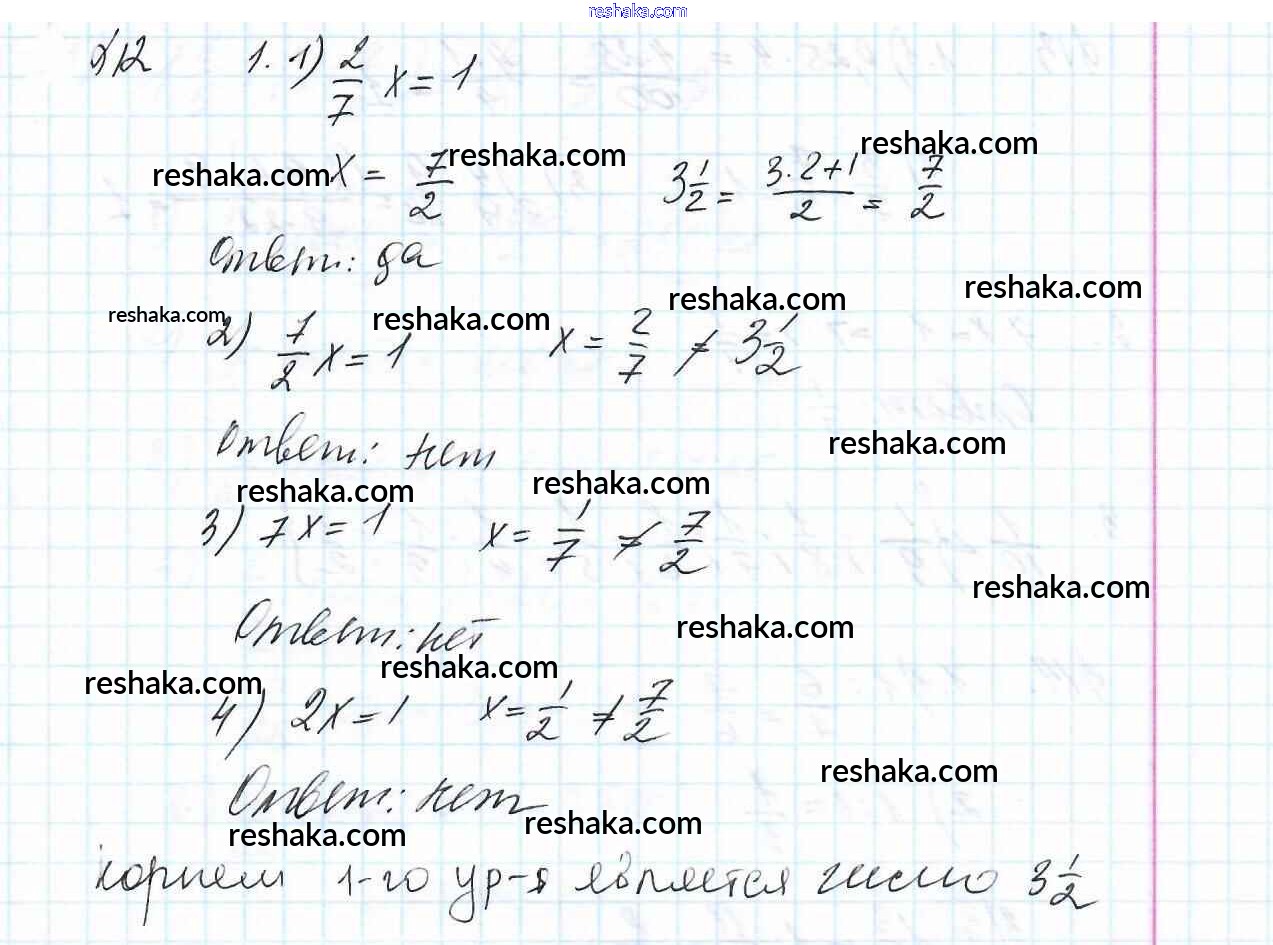 reshaka.com
§12 1. 1) 2/7 x = 1
x = 7/2 3 1/2 = (3·2+1)/2 = 7/2
reshaka.com reshaka.com reshaka.com
Ответ: да
reshaka.com reshaka.com
reshaka.com reshaka.com
2) 7/2 x = 1 x = 2/7 ≠ 3 1/2
Ответ: нет
reshaka.com
reshaka.com reshaka.com
3) 7x = 1 x = 1/7 ≠ 7/2
reshaka.com
Ответ: нет
reshaka.com
reshaka.com reshaka.com
4) 2x = 1 x = 1/2 ≠ 7/2
reshaka.com
Ответ: нет
reshaka.com reshaka.com
корнем 1-го ур-я является число 3 1/2